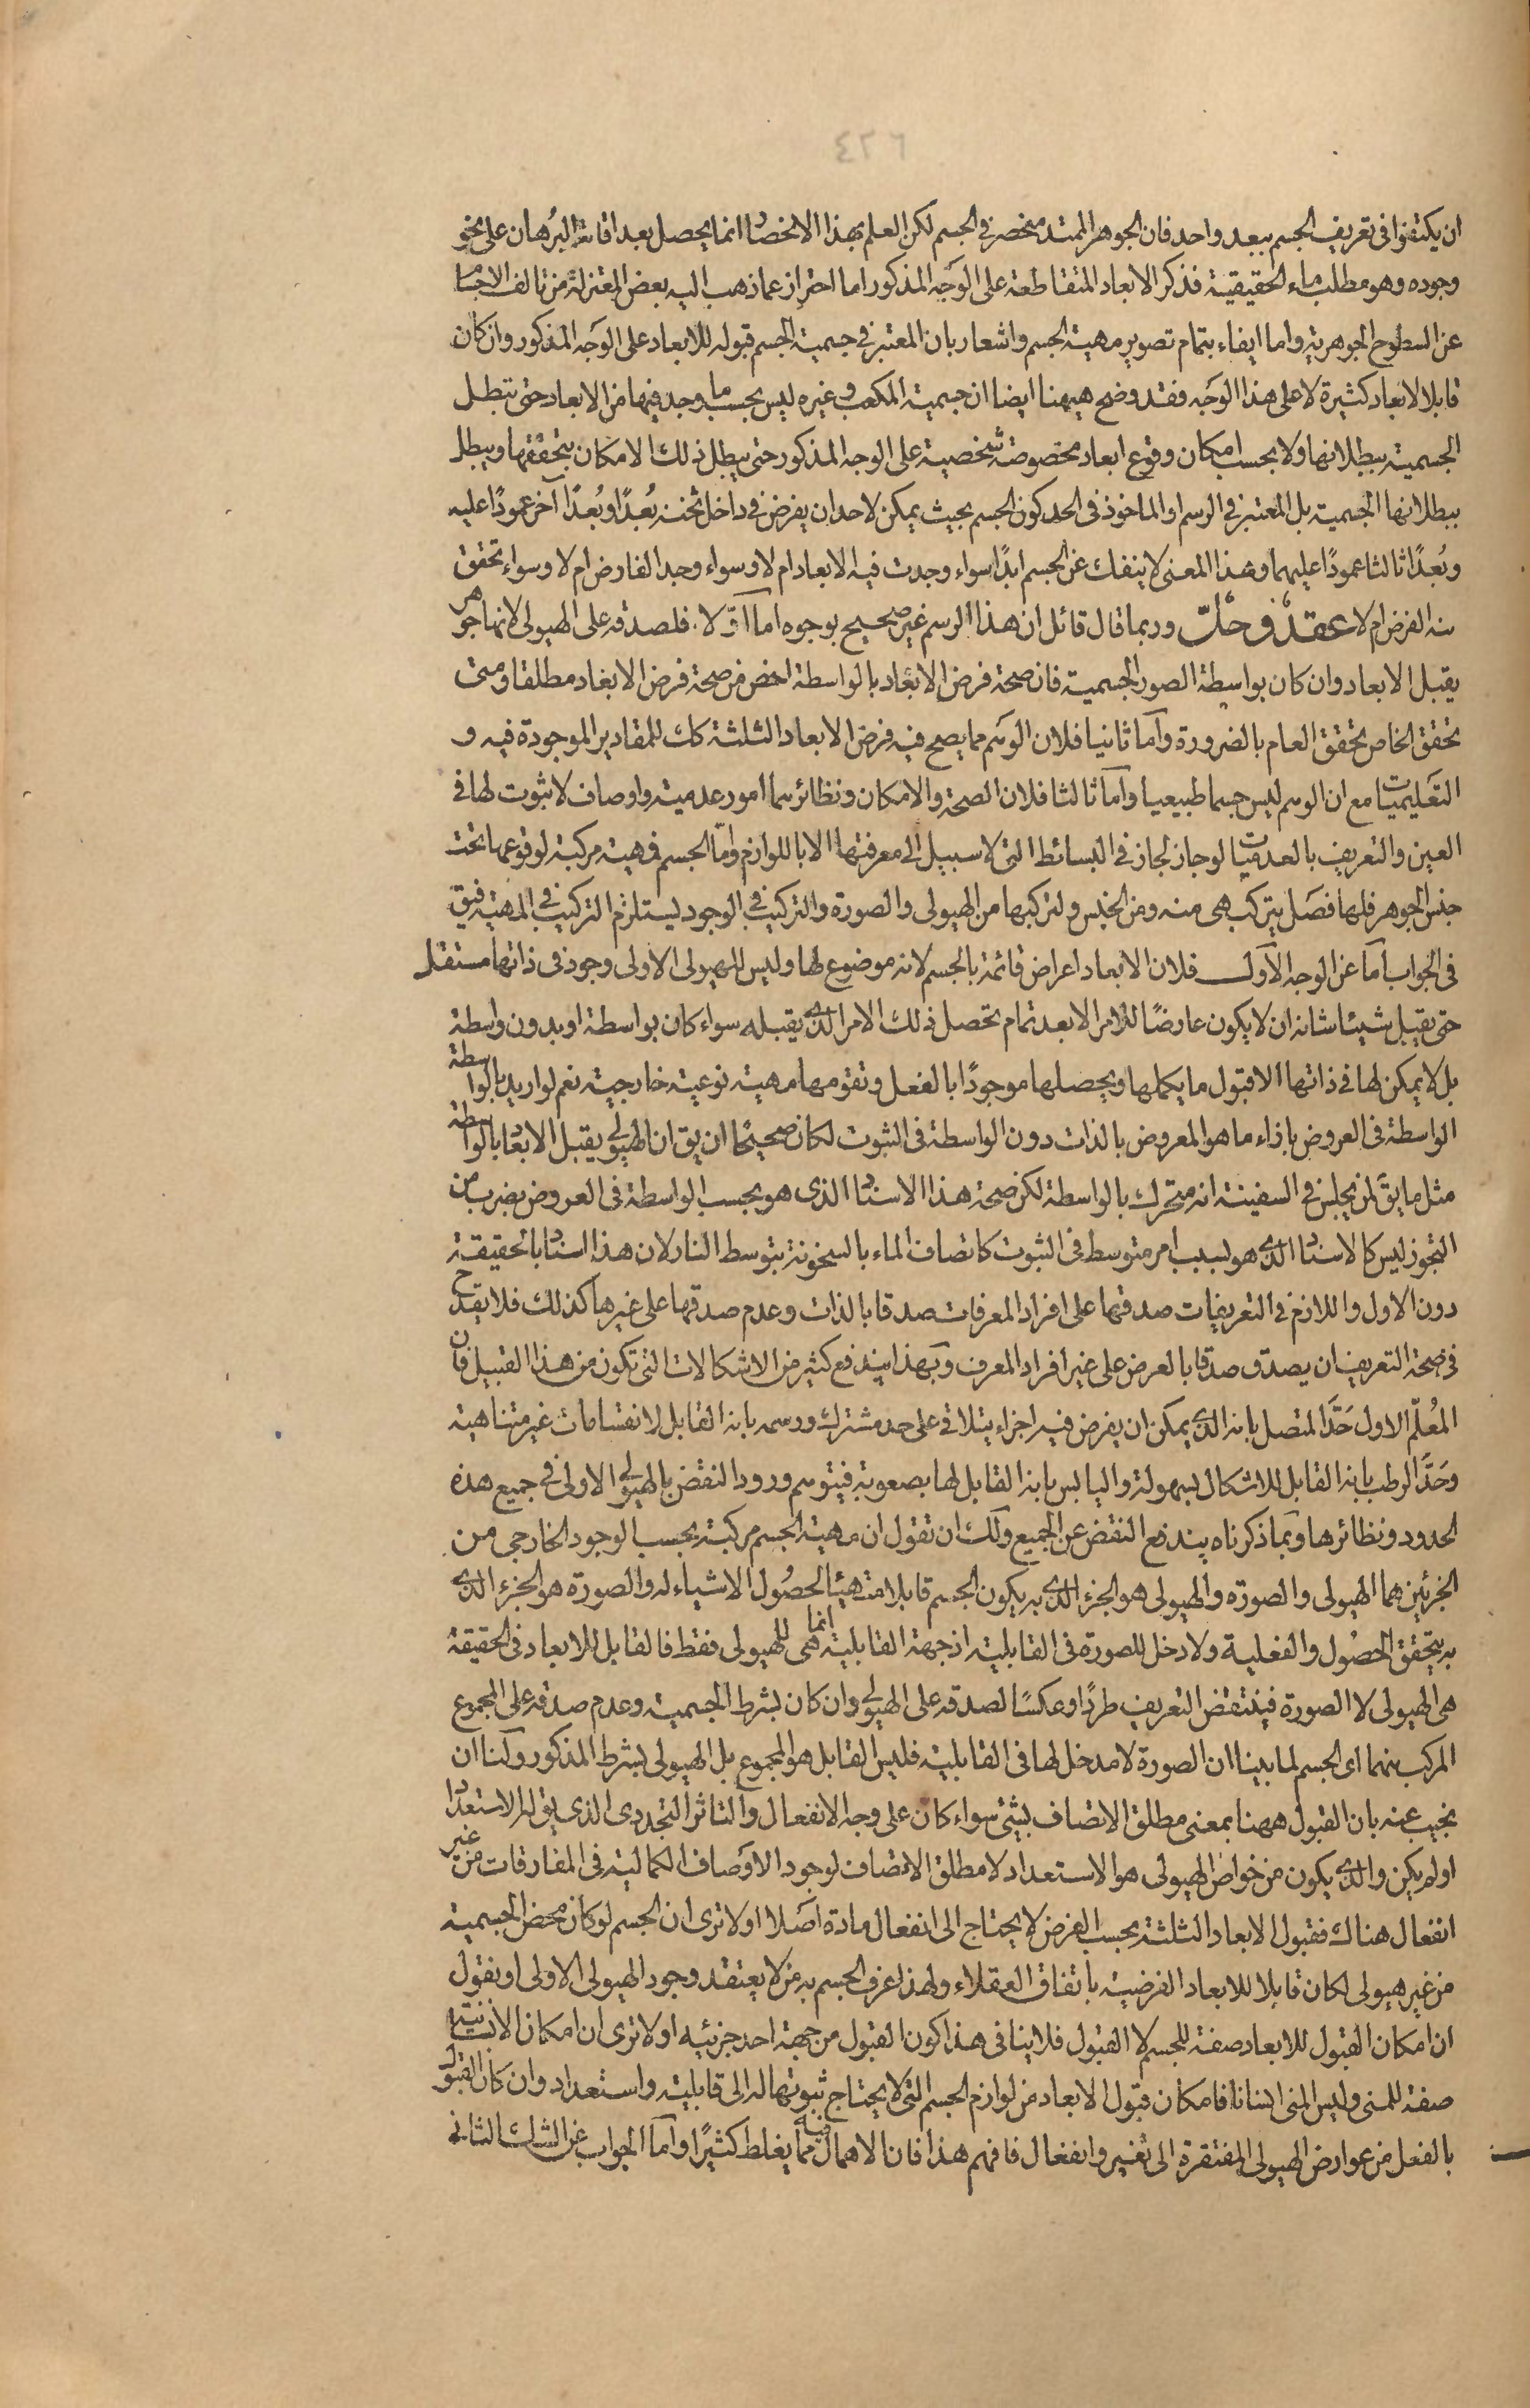 ٤٢٦
ان يكتفوا فى تعريف الجسم ببعد واحد فان الجوهر الممتد منحصر فى الجسم لكن العلم بهذا الانحصار انما يحصل بعد اقامة البرهان على نحو
وجوده وهو مطلب ماء الحقيقية فذكر الابعاد المتقاطعة على الوجه المذكور اما احتراز عما ذهب اليه بعض المعتزلة من تالف الاجسام
عن السطوح الجوهرية واما ايفاء بتمام تصوير مهية الجسم واشعار بان المعتبر فى جسمية الجسم قبوله للابعاد على الوجه المذكور وان كان
قابلا لابعاد كثيرة لا على هذا الوجه فقد وضح هيهنا ايضا ان جسمية المكعب وغيره ليس بحسب ما وجد فيها من الابعاد حتى تبطل
الجسمية ببطلانها ولا بحسب امكان وقوع ابعاد مخصوصة شخصية على الوجه المذكور حتى يبطل ذلك الامكان بتحققها ويبطل
ببطلانها الجسمية بل المعتبر فى الرسم او الماخوذ فى الحد كون الجسم بحيث يمكن لاحد ان يفرض فى داخل ثخنه بُعدًا وبُعدًا آخر عمودًا عليه
وبُعدًا ثالثا عمودًا عليهما وهذا المعنى لا ينفك عن الجسم ابدًا سواء وجدت فيه الابعاد ام لا وسواء وجد الفارض ام لا وسواء تحقق
منه الفرض ام لا عقد وحلّ وربما قال قائل ان هذا الرسم غير صحيح بوجوه امّا اوّلا فلصدقه على الهيولى لانها جوهر
يقبل الابعاد وان كان بواسطة الصور الجسمية فان صحة فرض الابعاد بالواسطة اخص من صحة فرض الابعاد مطلقا ومتى
تحقق الخاص تحقق العام بالضرورة وامّا ثانيا فلان الوهم مما يصح فيه فرض الابعاد الثلثة كك للمقادير الموجودة فيه و
التعليميات مع ان الوهم ليس جسما طبيعيا وامّا ثالثا فلان الصحة والامكان ونظائرهما امور عدمية واوصاف لا ثبوت لها فى
العين والتعريف بالعدميات لو جاز لجاز فى البسائط التى لا سبيل الى معرفتها الا باللوازم وامّا الجسم فهيته مركبة لوقوعها تحت
جنس الجوهر فلها فصل يتركب هى منه ومن الجنس ولتركبها من الهيولى والصورة والتركيب فى الوجود يستلزم التركيب فى المهية فيق
فى الجواب امّا عن الوجه الاول فلان الابعاد اعراض قائمة بالجسم لانه موضوع لها وليس للهيولى الاولى وجود فى ذاتها مستقل
حتى يقبل شيئا شانه ان لا يكون عارضًا للامر الا بعد تمام تحصل ذلك الامر الذى يقبله سواء كان بواسطة او بدون واسطة
بل لا يمكن لها فى ذاتها الا قبول ما يكملها ويحصلها موجودًا بالفعل وتقومها مهية نوعية خارجية نعم لو اريد بالواسطة
الواسطة فى العروض بازاء ما هو المعروض بالذات دون الواسطة فى الثبوت لكان صحيحًا ان يق ان الهيولى يقبل الابعاد بالواسطة
مثل ما يق لمن يجلس فى السفينة انه متحرك بالواسطة لكن صحة هذا الاسناد الذى هو بحسب الواسطة فى العروض بضرب من
التجوز ليس كالاسناد الذى هو بسبب امر متوسط فى الثبوت كاتصاف الماء بالسخونة بتوسط النار لان هذا اسناد بالحقيقة
دون الاول واللازم فى التعريفات صدقها على افراد المعرفات صدقا بالذات وعدم صدقها على غيرها كذلك فلا يقدح
فى صحة التعريف ان يصدق صدقا بالعرض على غير افراد المعرف وبهذا يندفع كثير من الاشكالات التى تكون من هذا القبيل فان
المُعلّم الاول حَدَّ المتصل بانه الذى يمكن ان يفرض فيه اجزاء يتلاقى على حد مشترك ورسمه بانه القابل لانقسامات غير متناهية
وحَدَّ الرطب بانه القابل للاشكال بسهولة واليابس بانه القابل لها بصعوبة فيتوهم ورود النقض بالهيولى الاولى فى جميع هذه
الحدود ونظائرها وبما ذكرناه يندفع النقض عن الجميع ولك ان تقول ان مهية الجسم مركبة بحسب الوجود الخارجى من
الجزئين هما الهيولى والصورة والهيولى هو الجزء الذى به يكون الجسم قابلا متهيئا لحصُول الاشياء له والصورة هو الجزء الذى
به يتحقق الحصُول والفعلية ولا دخل للصورة فى القابلية اذ جهة القابلية انما هى للهيولى فقط فالقابل للابعاد فى الحقيقة
هى الهيولى لا الصورة فينتقض التعريف طردًا وعكسًا لصدقه على الهيولى وان كان بشرط الجسمية وعدم صدقه على المجموع
المركب منهما اى الجسم لما بينا ان الصورة لا مدخل لها فى القابلية فليس القابل هو المجموع بل الهيولى بشرط المذكور ولنا ان
نجيب عنه بان القبول ههنا بمعنى مطلق الاتصاف بشئ سواء كان على وجه الانفعال والتاثر التجددى الذى يق له الاستعداد
او لم يكن والذى يكون من خواص الهيولى هو الاستعداد لا مطلق الاتصاف لوجود الاوصاف الكمالية فى المفارقات من غير
انفعال هناك فقبول الابعاد الثلثة بحسب الفرض لا يحتاج الى انفعال مادة اصلا او لا ترى ان الجسم لو كان محض الجسمية
من غير هيولى لكان قابلا للابعاد الفرضية باتفاق العقلاء ولهذا عرف الجسم به من لا يعتقد وجود الهيولى الاولى او نقول
ان امكان القبول للابعاد صفة للجسم لا القبول فلا ينافى هذا كون القبول من جهة احد جزئيه او لا ترى ان امكان الانسانية
صفة للمنى وليس المنى انسانا فامكان قبول الابعاد من لوازم الجسم التى لا يحتاج ثبوتها له الى قابلية واستعداد وان كان القبول
بالفعل من عوارض الهيولى المفتقرة الى تغير وانفعال فافهم هذا فان الاهمال فيه مما يغلط كثيرًا وامّا الجواب عن الشك الثانى